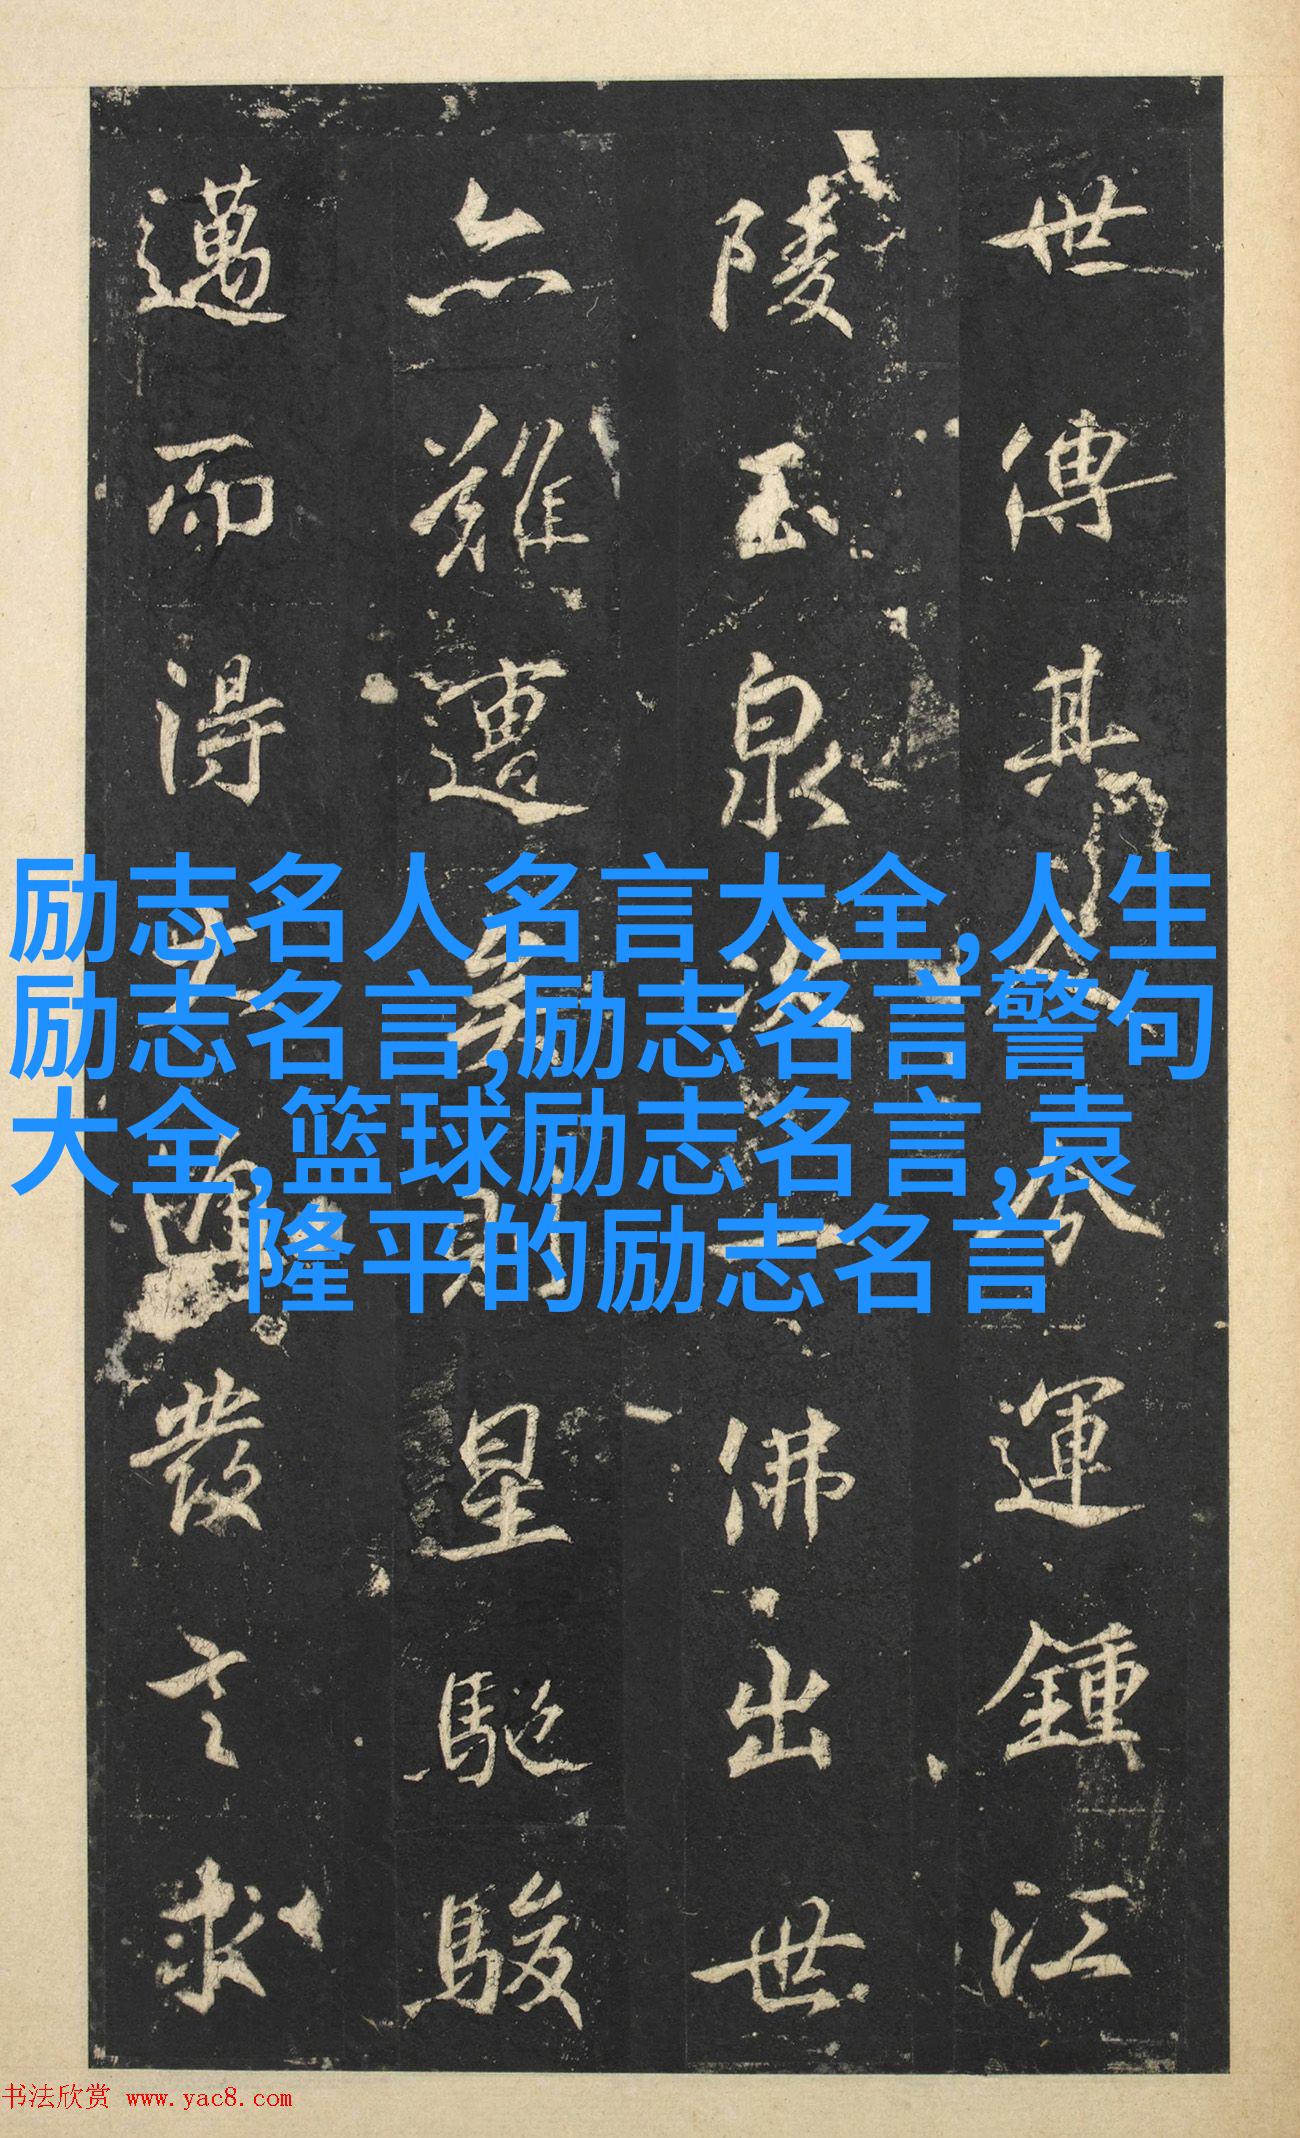 世傳其運鍾江
陵玉泉一佛出世
亦難遭則星馳駿
邁而得發言求
励志名人名言大全,人生
励志名言,励志名言警句
大全,篮球励志名言,袁
隆平的励志名言
书法欣赏 www.yac8.com